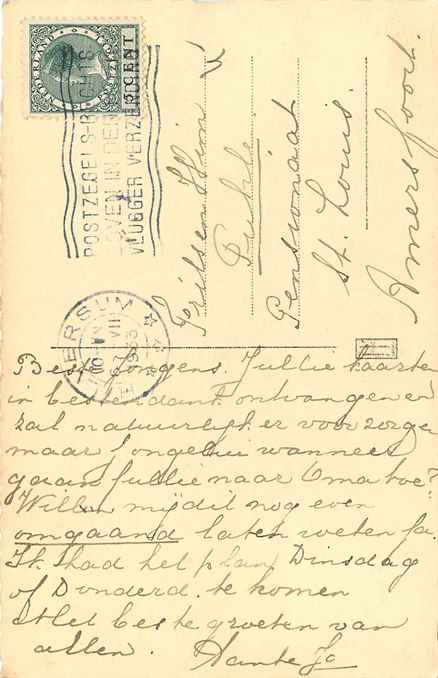 NEDERLAND
5 CENT
POSTZEGELS RECHTS
BOVEN IN DEN HOEK
VLUGGER VERZENDING
HILVERSUM
VII
1933
Frits en Wim
Pensionaat
St. Louis.
Amersfoort.
Beste Jongens. Jullie kaarten
in besten dank ontvangen er
zal natuurlijk er voor zorgen
maar Jongelui wanneer
gaan jullie naar Oma toe?
Willen mij dit nog even
omgaand laten weten ja.
Ik had het plan Dinsdag
of Donderd. te komen
Met beste groeten van
allen. Tante Jo